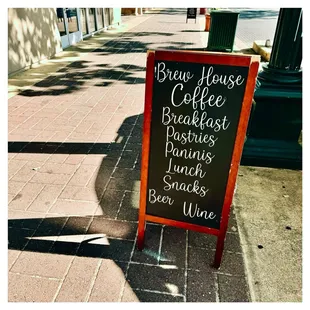 Brew House
Coffee
Breakfast
Pastries
Paninis
Lunch
Snacks
Beer Wine